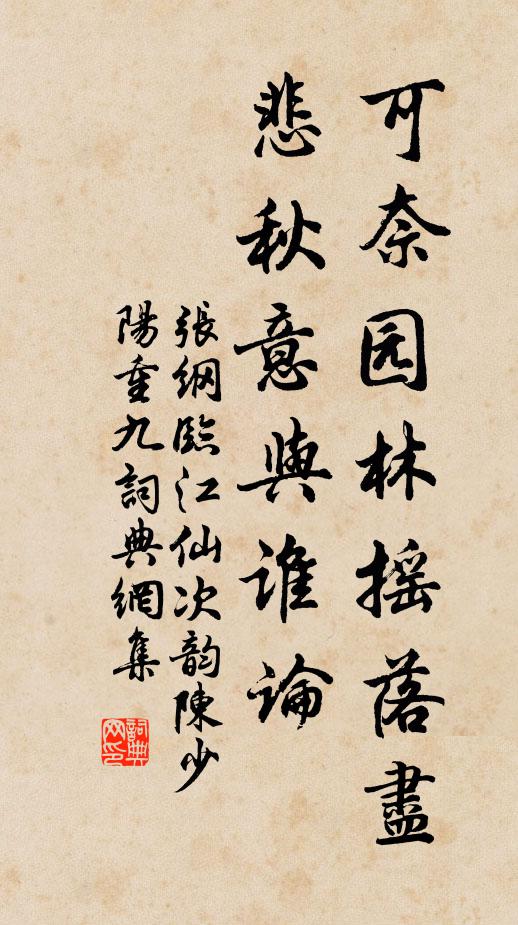 可奈园林摇落盡
悲秋意與誰論
張綱臨江仙次韵陳少
陽重九詞典網集
詞典
网印